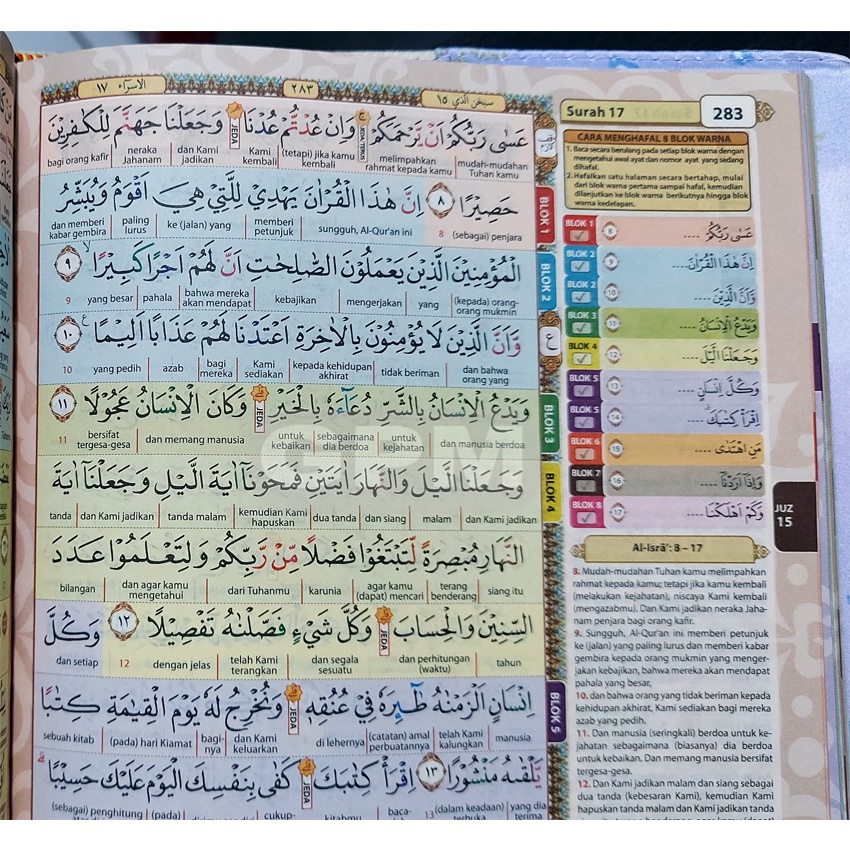 الاسراۤء ١٧
٢٨٣
سبحن الذي ١٥
عَسٰى رَبُّكُمْ اَنْ يَّرْحَمَكُمْ وَاِنْ عُدْتُّمْ عُدْنَا وَجَعَلْنَا جَهَنَّمَ لِلْكٰفِرِيْنَ
mudah-mudahan Tuhan kamu melimpahkan rahmat kepada kamu; (tetapi) jika kamu kembali Kami kembali dan Kami jadikan neraka Jahanam bagi orang kafir
حَصِيْرًا ٨ اِنَّ هٰذَا الْقُرْاٰنَ يَهْدِيْ لِلَّتِيْ هِيَ اَقْوَمُ وَيُبَشِّرُ
(sebagai) penjara 8 sungguh, Al-Qur'an ini memberi petunjuk ke (jalan) yang paling lurus dan memberi kabar gembira
الْمُؤْمِنِيْنَ الَّذِيْنَ يَعْمَلُوْنَ الصّٰلِحٰتِ اَنَّ لَهُمْ اَجْرًا كَبِيْرًا ٩
(kepada) orang-orang mukmin yang mengerjakan kebajikan bahwa mereka akan mendapat pahala yang besar 9
وَّاَنَّ الَّذِيْنَ لَا يُؤْمِنُوْنَ بِالْاٰخِرَةِ اَعْتَدْنَا لَهُمْ عَذَابًا اَلِيْمًا ١٠
dan bahwa orang yang tidak beriman kepada kehidupan akhirat Kami sediakan bagi mereka azab yang pedih 10
وَيَدْعُ الْاِنْسَانُ بِالشَّرِّ دُعَاۤءَهٗ بِالْخَيْرِ وَكَانَ الْاِنْسَانُ عَجُوْلًا ١١
dan manusia berdoa untuk kejahatan sebagaimana dia berdoa untuk kebaikan dan memang manusia bersifat tergesa-gesa 11
وَجَعَلْنَا الَّيْلَ وَالنَّهَارَ اٰيَتَيْنِ فَمَحَوْنَآ اٰيَةَ الَّيْلِ وَجَعَلْنَآ اٰيَةَ
dan Kami jadikan malam dan siang dua tanda kemudian Kami hapuskan tanda malam dan Kami jadikan tanda
النَّهَارِ مُبْصِرَةً لِّتَبْتَغُوْا فَضْلًا مِّنْ رَّبِّكُمْ وَلِتَعْلَمُوْا عَدَدَ
siang itu terang benderang agar kamu (dapat) mencari karunia dari Tuhanmu dan agar kamu mengetahui bilangan
السِّنِيْنَ وَالْحِسَابَ وَكُلَّ شَيْءٍ فَصَّلْنٰهُ تَفْصِيْلًا ١٢ وَكُلَّ
tahun dan perhitungan (waktu) dan segala sesuatu telah Kami terangkan dengan jelas 12 dan setiap
اِنْسَانٍ اَلْزَمْنٰهُ طٰۤىِٕرَهٗ فِيْ عُنُقِهٖ وَنُخْرِجُ لَهٗ يَوْمَ الْقِيٰمَةِ كِتٰبًا
manusia telah Kami kalungkan (catatan) amal perbuatannya di lehernya dan Kami keluarkan bagi-nya (pada) hari Kiamat sebuah kitab
يَّلْقٰىهُ مَنْشُوْرًا ١٣ اِقْرَأْ كِتٰبَكَ كَفٰى بِنَفْسِكَ الْيَوْمَ عَلَيْكَ حَسِيْبًا
yang dia terima (dalam keadaan) terbuka 13 baca- kitabmu cukup- (pada) (sebagai) penghitung
JEDA TERUS
JEDA
JEDA
JEDA
JEDA
JEDA
BLOK 1
BLOK 2
BLOK 3
BLOK 4
BLOK 5
Surah 17
283
CARA MENGHAFAL 8 BLOK WARNA
1. Baca secara berulang pada setiap blok warna dengan
mengetahui awal ayat dan nomor ayat yang sedang
dihafal.
2. Hafalkan satu halaman secara bertahap, mulai
dari blok warna pertama sampai hafal, kemudian
dilanjutkan ke blok warna berikutnya hingga blok
warna kedelapan.
BLOK 1 8 عَسٰى رَبُّكُمْ ....
BLOK 2 9 اِنَّ هٰذَا الْقُرْاٰنَ....
BLOK 2 10 وَّاَنَّ الَّذِيْنَ ....
BLOK 3 11 وَيَدْعُ الْاِنْسَانُ ....
BLOK 4 12 وَجَعَلْنَا الَّيْلَ ....
BLOK 5 13 وَكُلَّ اِنْسَانٍ ....
BLOK 5 14 اِقْرَأْ كِتٰبَكَ ....
BLOK 6 15 مَنِ اهْتَدٰى ....
BLOK 7 16 وَاِذَآ اَرَدْنَآ ....
BLOK 8 17 وَكَمْ اَهْلَكْنَا ....
JUZ
15
Al-Isrā': 8 – 17
8. Mudah-mudahan Tuhan kamu melimpahkan
rahmat kepada kamu; tetapi jika kamu kembali
(melakukan kejahatan), niscaya Kami kembali
(mengazabmu). Dan Kami jadikan neraka Jaha-
nam penjara bagi orang kafir.
9. Sungguh, Al-Qur'an ini memberi petunjuk
ke (jalan) yang paling lurus dan memberi kabar
gembira kepada orang mukmin yang menger-
jakan kebajikan, bahwa mereka akan mendapat
pahala yang besar,
10. dan bahwa orang yang tidak beriman kepada
kehidupan akhirat, Kami sediakan bagi mereka
azab yang pedih.
11. Dan manusia (seringkali) berdoa untuk ke-
jahatan sebagaimana (biasanya) dia berdoa
untuk kebaikan. Dan memang manusia bersifat
tergesa-gesa.
12. Dan Kami jadikan malam dan siang sebagai
dua tanda (kebesaran Kami), kemudian Kami
hapuskan tanda malam dan Kami jadikan tanda